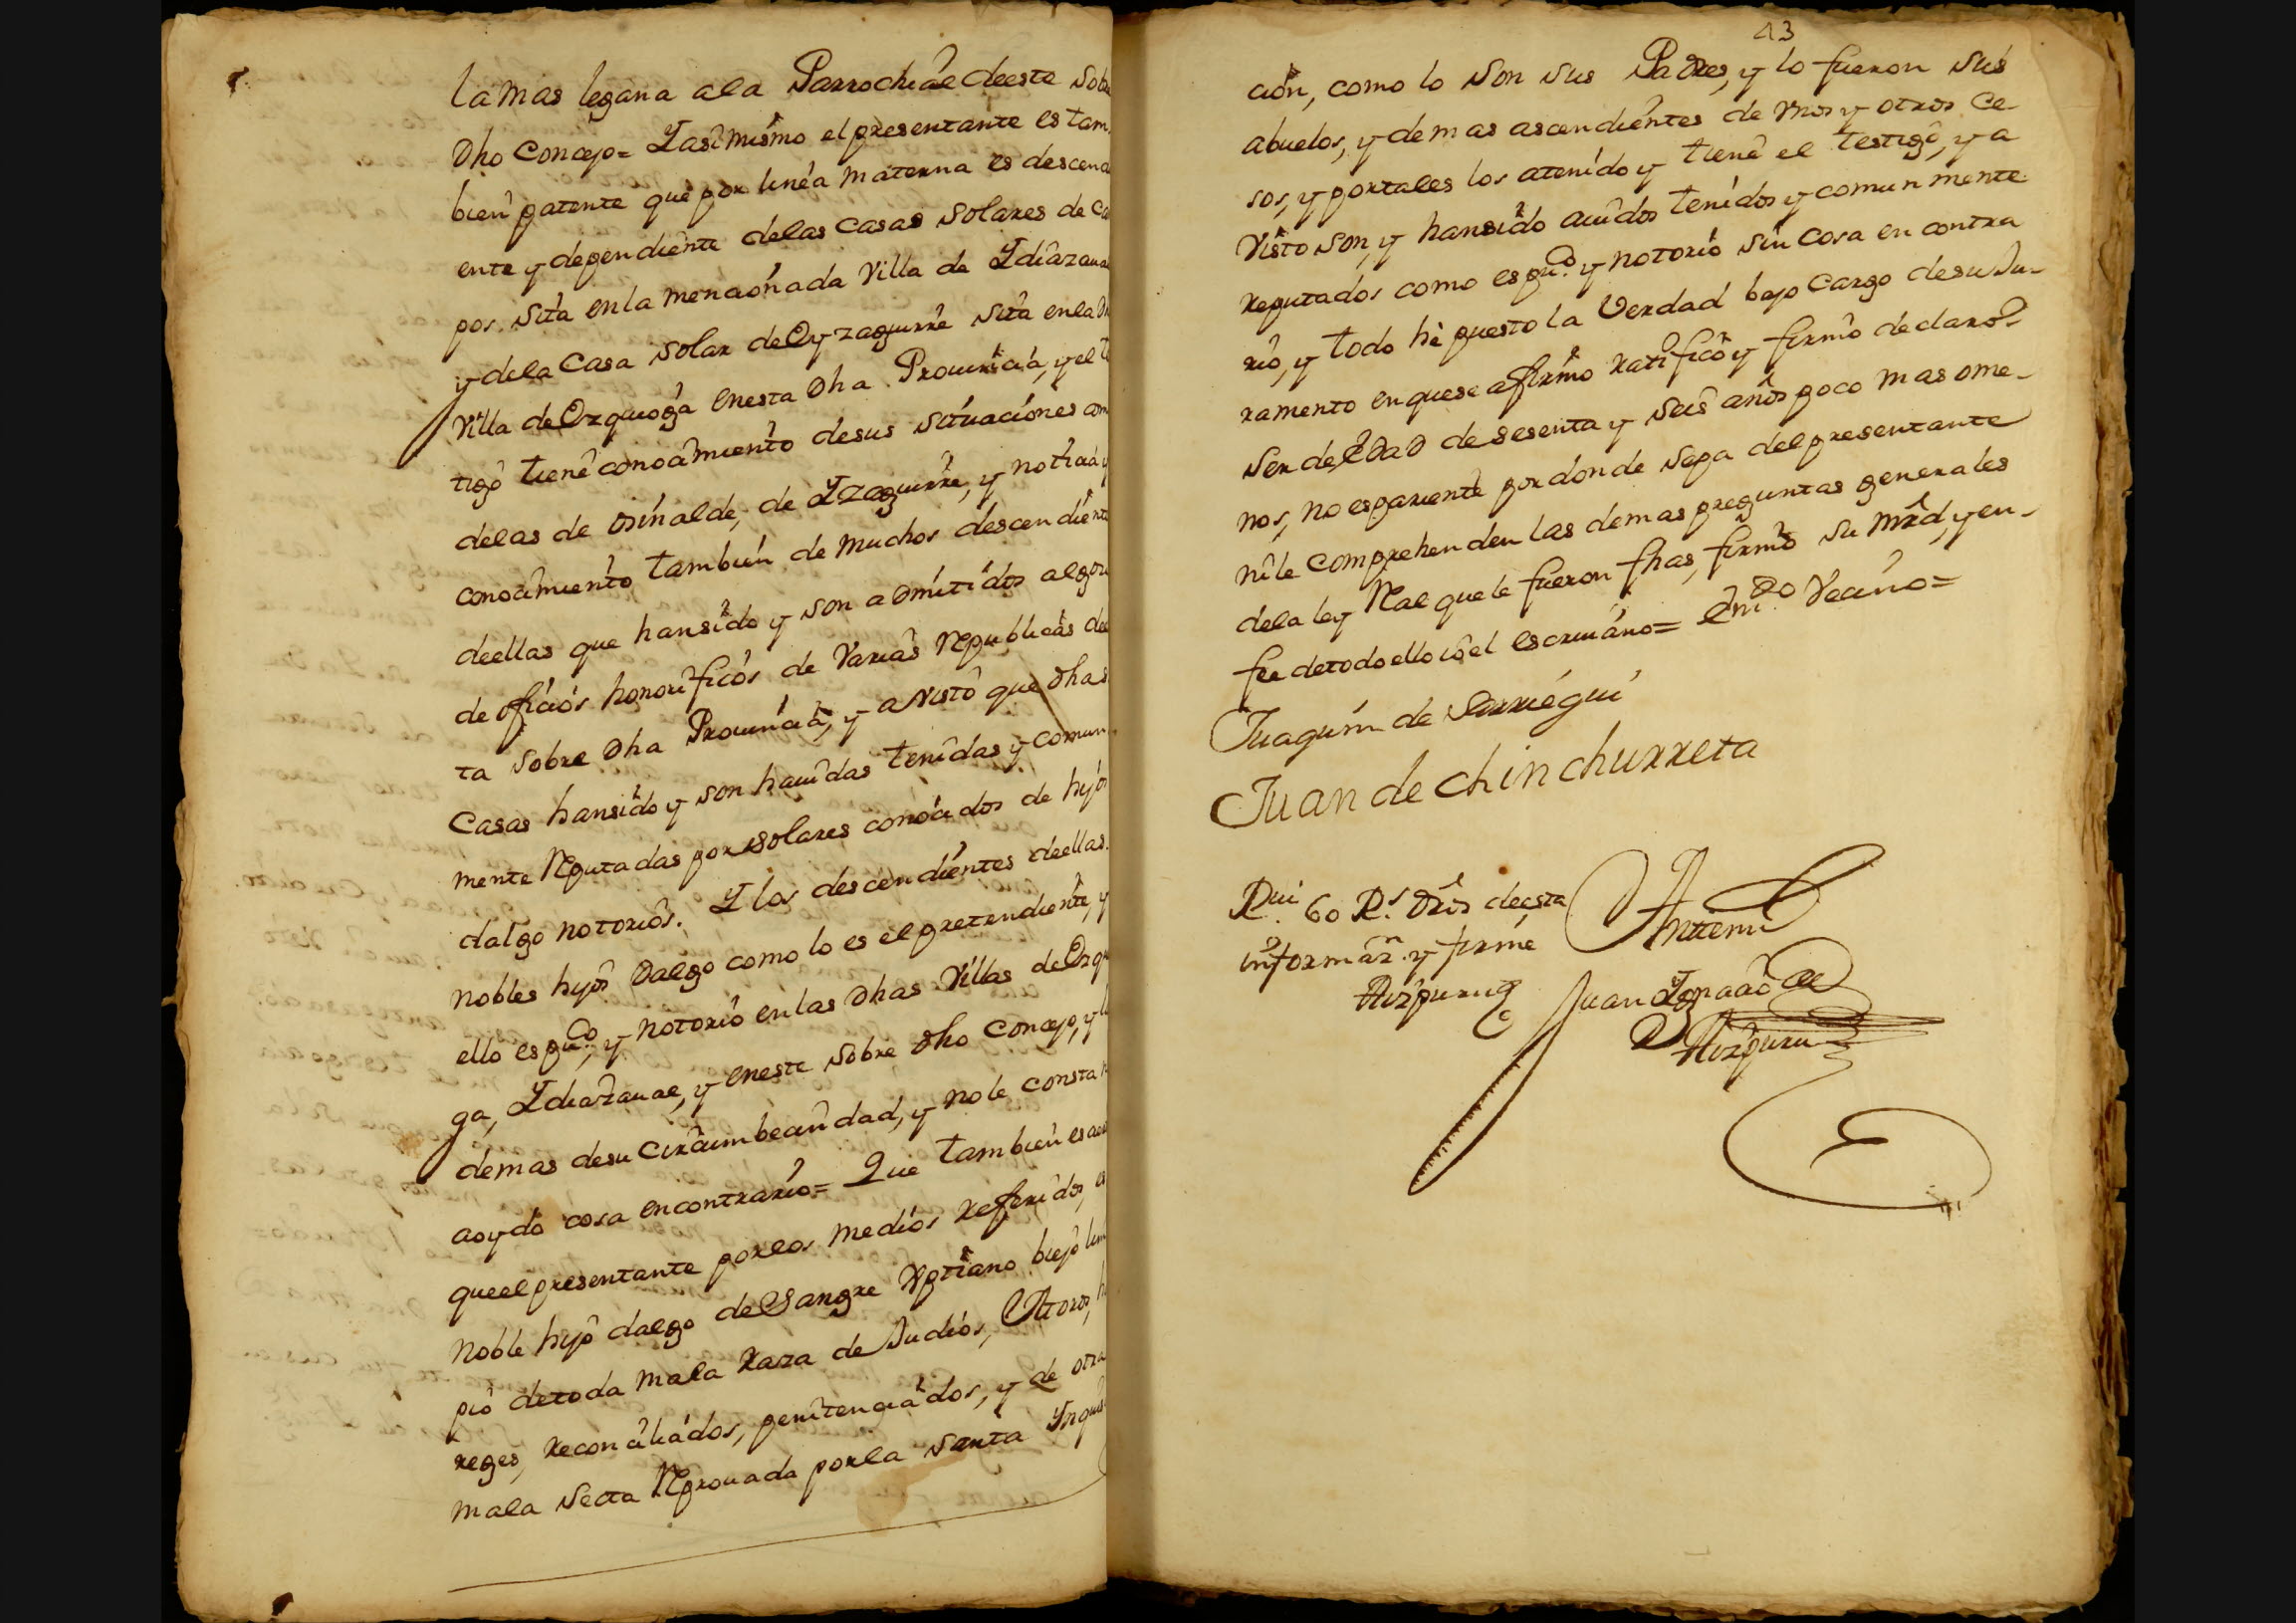 la mas legana a la Parrochiâl de este Sobre
dho Concejo= Y asimismo el presentante es tam
bien patente que por linéa materna es descend
ente y dependiente de las casas solares de
pos. sita en la mencionada Villa de Ydiazaual
y de la Casa solar de Oyzaguirre sita en la
Villa de Ezquioga en esta dha Prouincia, y el
tigo tiene conocimiento de sus situaciones
de las de osinalde, de Yzaguirre, y noticia y
conocimiento tambien de muchos descendient
de ellas que han sido y son admitidos al goze
de oficios honorificos de Varias Republicas de
ta sobre dha Prouincia, y a visto que dhas
Casas han sido y son hauidas tenidas y comun
mente Reputadas por solares conocidos de hijos
dalgo notorios. Y los descendientes de ellas.
nobles hijos dalgo como lo es el pretendiente, y
ello es puco, y notorio en las dhas Villas de Ezqui
ga, Ydiazaual, y en este sobre dho Concejo, y
demas de su circumbecindad, y no le consta
a oydo cosa en contrario= Que tambien es
que el presentante por los medios referidos, es
noble hijo dalgo de Sangre Xptiano biejo lim
pio de toda mala Raza de Judios, Moros,
reges, Reconciliados, penitenciados, y de otra
mala Secta Reprouada por la Santa Ynquisi
43
ción, como lo son sus Padres, y lo fueron sus
abuelos, y demas ascendientes de vnos y otros Ce-
sos, y por tales los a tenido y tiene el testigo, y a
Visto son, y han sido auidos tenidos y comun mente
reputados como es puco y notorio sin cosa en contra
rio, y todo hé puesto la Verdad bajo cargo de su Ju-
ramento en que se afirmo ratificó y firmó declaró
ser de Edad de sesenta y seis años poco mas o me-
nos, no es pariente por donde sepa del presentante
ni le comprehenden las demas preguntas generales
de la ley Real que le fueron fhas, firmó su mrd, y en-
fee de todo ello io el escriuano= Emdo Vecino=
Juaquin de Sarriegui
Juan de Chinchurreta
Rui 60 Rs. Dros de esta
informan. y firme
Aizpuru
Antemi
Juan Ygnacio de
Aizpuru